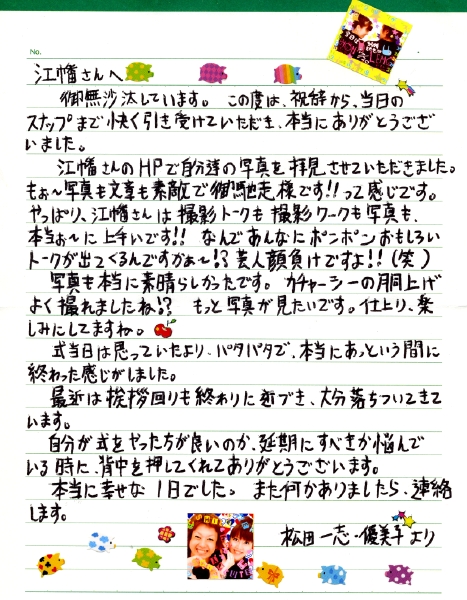 No.
江幡さんへ
御無沙汰しています。この度は、祝辞から、当日の
スナップまで快く引き受けていただき、本当にありがとうござ
いました。
江幡さんのHPで自分達の写真を拝見させていただきました。
もぉ～写真も文章も素敵で御馳走様です!!って感じです。
やっぱり、江幡さんは撮影トークも撮影ワークも写真も、
本当ぉ～に上手いです!! なんであんなにポンポンおもしろい
トークが出てくるんですかぁ～!? 芸人顔負けですよ!!(笑)
写真も本当に素晴らしかったです。カチャーシーの胴上げ
よく撮れましたね!? もっと写真が見たいです。仕上り、楽
しみにしてますね。
式当日は思っていたより、バタバタで、本当にあっという間に
終わった感じがしました。
最近は挨拶回りも終わりに近づき、大分落ちついてきて
います。
自分が式をやった方が良いのか、延期にすべきか悩んで
いる時に、背中を押してくれてありがとうございます。
本当に幸せな1日でした。また何かありましたら、連絡
します。
松田一志・優美子より